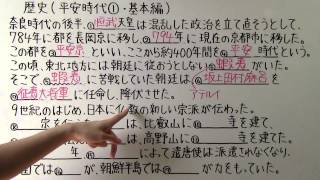 歴史（平安時代①・基本編）
奈良時代の後半、①桓武天皇は混乱した政治を立て直そうとして、
784年に都を長岡京に移し、②794年に現在の京都市に移した。
この都を③平安京といい、ここから約400年間を④平安時代という。
この頃、東北地方には朝廷に従おうとしない⑤蝦夷がいた。
そこで、⑥蝦夷に苦戦していた朝廷は、⑦坂上田村麻呂を
⑧征夷大将軍に任命し、降伏させた。 アテルイ
9世紀のはじめ、日本に仏教の新しい宗派が伝わった。
宗を は、比叡山に 寺を建て、
は、高野山に 寺を建てた。
年、 によって遣唐使は派遣されなくなり、
国では が、朝鮮半島では が力をもていた。